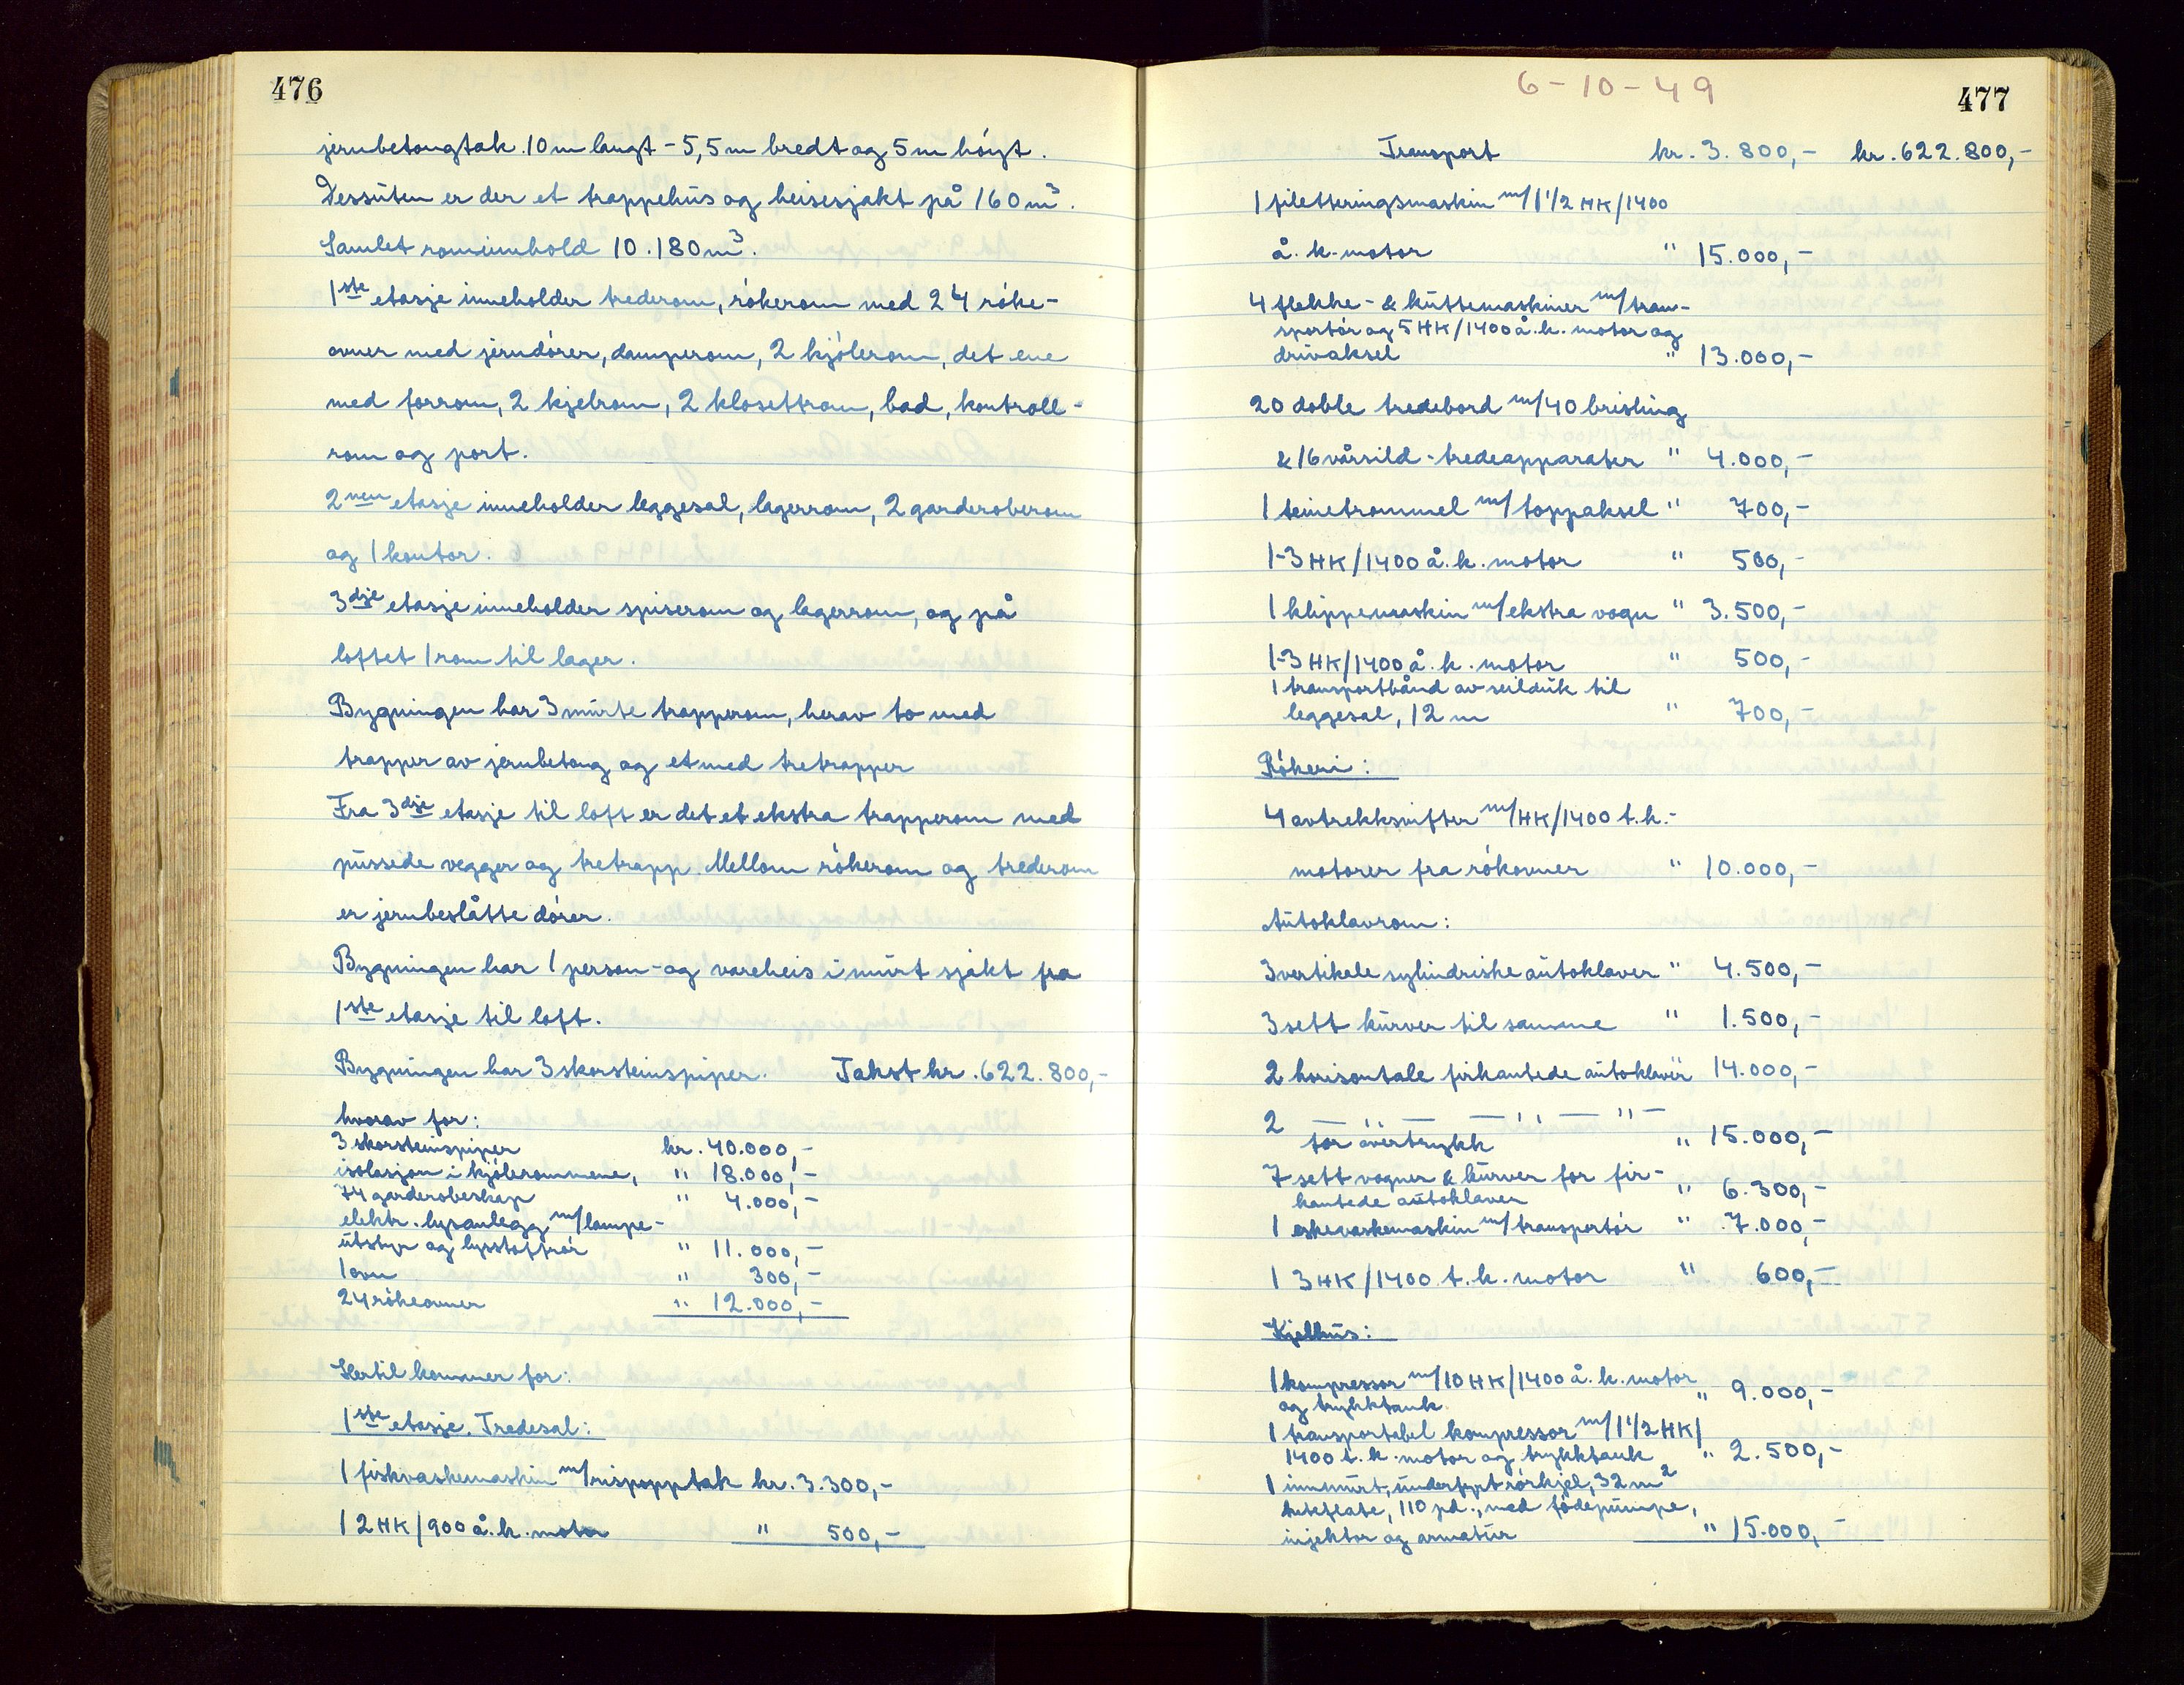 476
jernbetongtak. 10 m langt - 5,5 m bredt og 5 m høyt.
Dessuten er der et trappehus og heisesjakt på 160 m³.
Samlet rominnhold 10.180 m³.
1ste etasje inneholder trederom, rökerom med 24 röke-
ovner med jerndörer, damperom, 2 kjölerom, det ene
med forrom, 2 kjelrom, 2 klosettrom, bad, kontroll-
rom og port.
2nen etasje inneholder leggesal, lagerrom, 2 garderoberom
og 1 kontor.
3dje etasje inneholder spiserom og lagerrom, og på
loftet 1 rom til lager.
Bygningen har 3 murte trapperom, herav to med
trapper av jernbetong og et med tretrapper
Fra 3dje etasje til loft er det et ekstra trapperom med
pussede vegger og tretrapp. Mellom rökerom og trederom
er jernbeslåtte dörer.
Bygningen har 1 person- og vareheis i murt sjakt fra
1ste etasje til loft.
Bygningen har 3 skorsteinspiper. Takst kr. 622.800,-
hvorav for:
3 skorsteinspiper kr. 40.000,-
isolasjon i kjölerommene, " 18.000,-
74 garderobeskap " 4.000,-
elektr. lysanlegg m/lampe-
utstyr og lysstoffrör " 11.000,-
1 ovn " 300,-
24 rökeovner " 12.000,-
Hertil kommer for:
1ste etasje. Tredesal:
1 fiskvaskemaskin m/rispopptak kr. 3.300,-
1 2 HK/900 å.k. motor " 500,-
6-10-49
477
Transport kr. 3.800,- kr. 622.800,-
1 filetteringsmaskin m/1 1/2 HK/1400
å.k. motor " 15.000,-
4 flekke- & kuttemaskiner m/tran-
sportör og 5 HK/1400 å.k. motor og
drivaksel " 13.000,-
20 doble tredebord m/40 brisling
& 16 vårsild-tredeapparater " 4.000,-
1 teinetrommel m/toppaksel " 700,-
1-3 HK/1400 å.k. motor " 500,-
1 klippemaskin m/ekstra vogn " 3.500,-
1-3 HK/1400 å.k. motor " 500,-
1 transportbånd av seilduk til
leggesal, 12 m " 700,-
Rökeri:
4 avtrekksvifter m/HK/1400 t.k.-
motorer fra rökovner " 10.000,-
Autoklavrom:
3 vertikale sylindriske autoklaver " 4.500,-
3 sett kurver til samme " 1.500,-
2 horisontale firkantede autoklaver " 14.000,-
2 — " — — " — " —
for overtrykk " 15.000,-
7 sett vogner & kurver for fir-
kantede autoklaver " 6.300,-
1 eskevaskemaskin m/transportör " 7.000,-
1 3 HK/1400 t.k. motor " 600,-
Kjelhus:
1 kompressor m/10 HK/1400 å.k. motor
og trykktank " 9.000,-
1 transportabel kompressor m/1 1/2 HK/
1400 t.k. motor og trykktank " 2.500,-
1 innmurt, underfyrt rörkjel, 32 m²
heteflate, 110 pd., med födepumpe,
injektor og armatur " 15.000,-